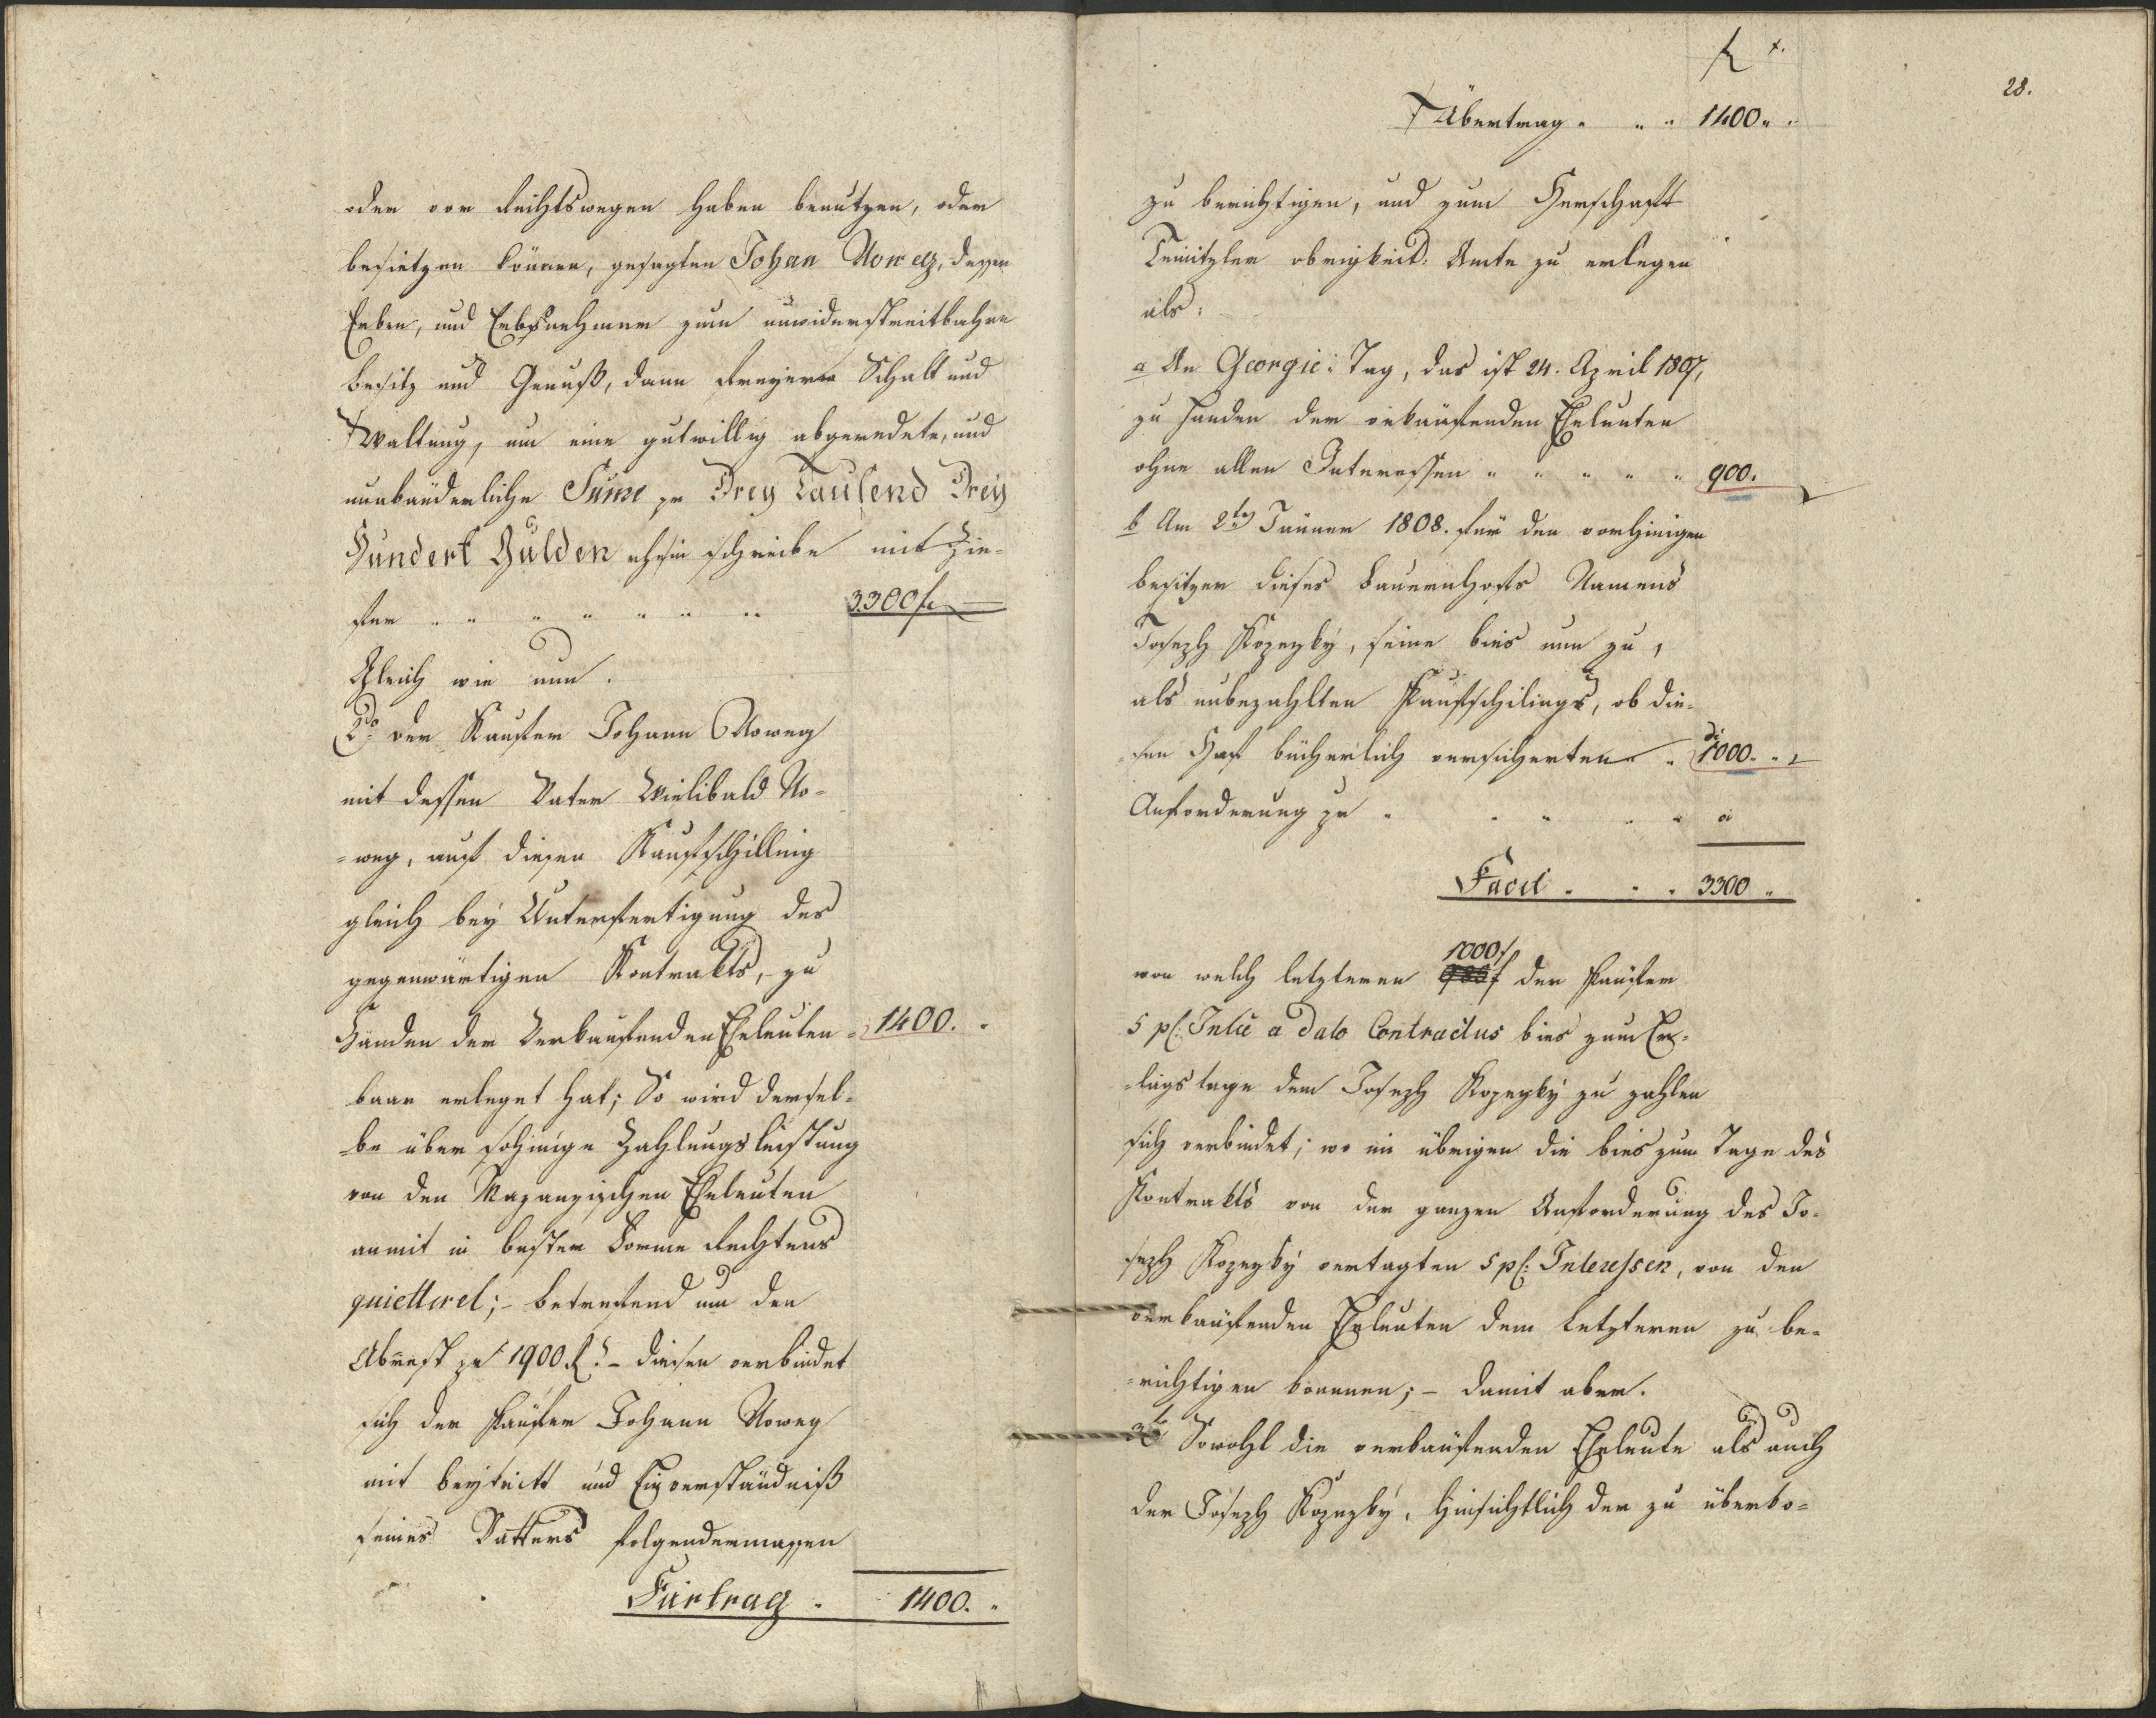 oder von Rechtswegen haben benutzen, oder
besietzen können, gesagten Johan Noweg, dessen
Erben, und Erbsnehmer zum unwiderstreitbahren
Besitz und Genuß, dann freyer Schalt und
Waltung, um eine gutwillig abgeredete, und
unabänderliche Sume pr Drey Tausend Drey
Hundert Gulden rhein schreibe mit Zie-
fer " " " " " " " 3300 f
Gleich wie nun.
2do der Kaufer Johann Noweg
mit dessen Vater Wielibald No-
=weg, auf diesen Kaufschilling
gleich bey Unterfertigung des
gegenwärtigen Kontrakts, zu
Handen der Verkaufenden Eheleuten " 1400. "
baar erleget hat; So wird dersel-
be über sohinige Zahlungsleistung
von den Eheleuten
anmit in bester Forme Rechtens
quiettiret; - betrefend um den
Abrest pr 1900 f. - diesen verbindet
sich der Käufer Johann Noweg
mit Beytritt und Einverständniß
seines Vatters folgendermassen
Fürtrag . 1400. "
28.
f x.
Übertrag " " " 1400 " "
zu berichtigen, und zum Herschaft
obrigkeitl: Amte zu erlegen
als:
a An Georgie: Tag, das ist 24. April 1807,
zu Handen der verkäufenden Eheleuten
ohne allen Interessen " " " " " 900.
b Am 2ten Jänner 1808. für den vorhinigen
Besitzer dieses Bauernhofs Namens
Joseph Kopezky, seine bies nun zu,
als unbezahlten Kaufschilings, ob die-
sen Hof bücherlich versicherten " 1000. "
Anforderung pr " " " " "
Facit " " " 3300 "
von welch letzteren 1000 f der Käufer
5 pC: Intie a dato Contractus bies zum Er-
=lagstage dem Joseph Kopezky zu zahlen
sich verbindet; wo im übrigen die bies zum Tage des
Kontrakts von der ganzen Anforderung des Jo-
seph Kopezky vertagten 5 pC: Interessen, von den
verkäufenden Eheleuten dem Letzteren zu be-
=richtigen kommen; - damit aber.
3tio Sowohl die verkäufenden Eheleute als auch
der Joseph Kopezky, hinsichtlich der zu überko-